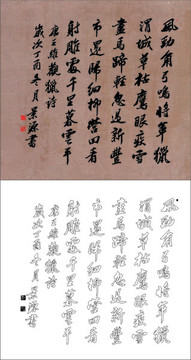 風勁角弓鳴將軍獵
渭城草枯鷹眼疾雪
盡馬蹄輕忽過新豐
市還歸細柳營回看
射雕處千里暮雲平
唐王維觀獵詩
歲次丁酉冬月景源書
風勁角弓鳴將軍獵
渭城草枯鷹眼疾雪
盡馬蹄輕忽過新豐
市還歸細柳營回看
射雕處千里暮雲平
唐王維觀獵詩
歲次丁酉冬月景源書